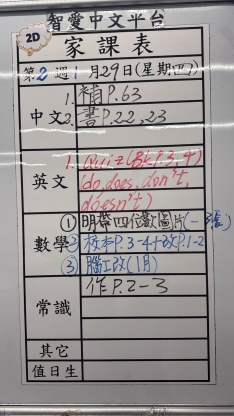 智愛中文平台
2D
家課表
第2週1月29日(星期四)
中文
1. 補P.63
2. 書P.22,23
英文
1. Quiz(Bk P.3,4)
(do, does, don't,
doesn't)
數學
① 明帶四位數圖片(一張)
② 校本P.3-4+改P.1-2
③ 腦工改(1月)
常識
作P.2-3
其它
值日生